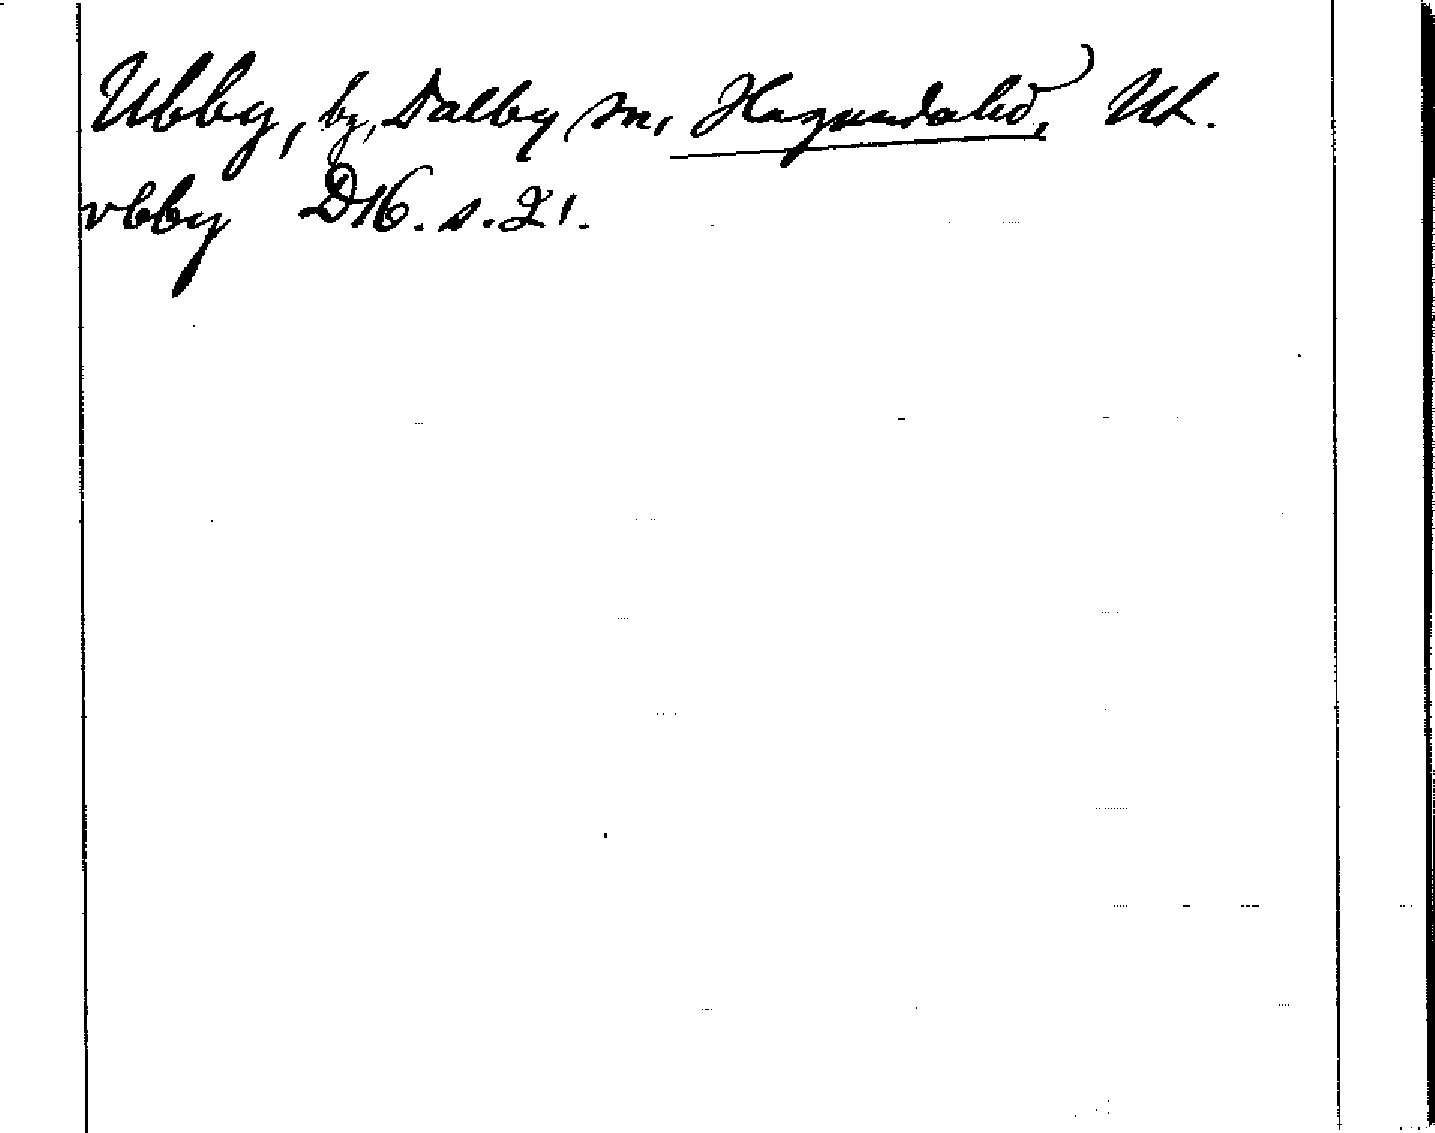 Ubby, by, Dalby sn, Hagundahd, Ul.
vbby D16. s. 21.